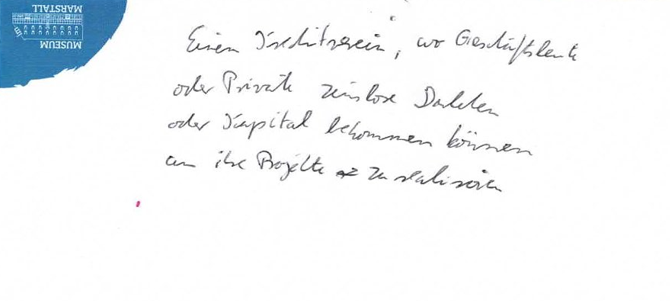 MUSEUM
MARSTALL
Einen Kreditverein, wo Geschäftsleute
oder Private zinslose Dahlen
oder Kapital bekommen können
um ihre Projekte zu realisieren